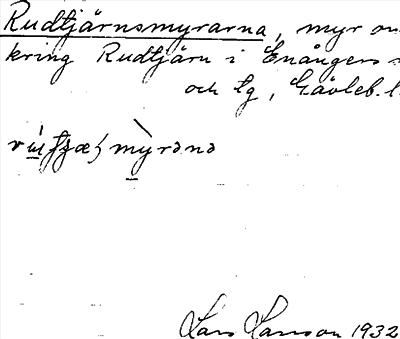 Rudtjärnsmyrarna, myr om
kring Rudtjärn i Enångers s
och lg, Gävleb. l
myrənɑ
Lars Larsson 1932